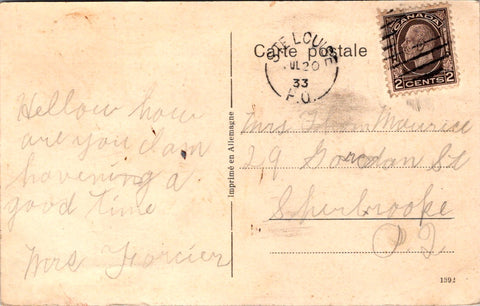 Carte postale
STE LOUISE
JUL 20
33
P.Q.
CANADA
2 CENTS 2
Hellow how
are you I am
havening a
good time
Mrs Forcier
Imprimé en Allemagne
Mrs Maurice
29 Gordon St
Sherbrooke
P.Q.
1392